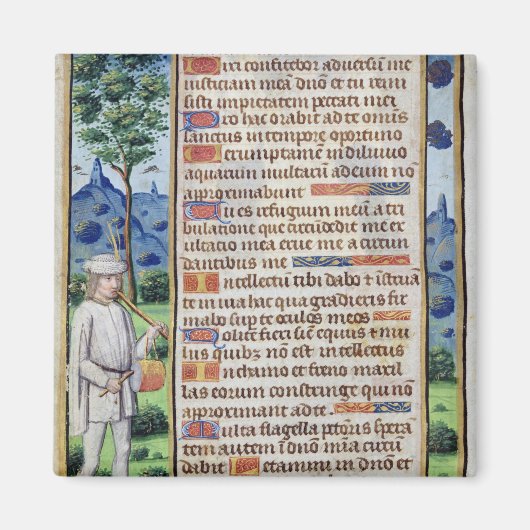 Dixi confitebor adversum me
iusticiam meā dnō et tu remi
sisti impietatem peccati mei
Pro hac orabit ad te omīs
sanctus in tempore oportuno
Verumptamē in diluvio
aquarum multarū ad eum nō
approximabunt
Tu es refugium meū a tri
bulatione que circūdedit me ex
ultatio mea erue me a circun
dantibus me
Intellectū tibi dabo & instruā
te in via hac qua gradieris fir
mabo sup te oculos meos
Nolite fieri sicut equus & mu
lus quibȝ nō est intellectus
In chamo et freno maxil
las eorum constringe qui nō
approximant ad te
Multa flagella pctōris sperā
tem autem ī dnō mīa circū
dabit Letamini in dnō et